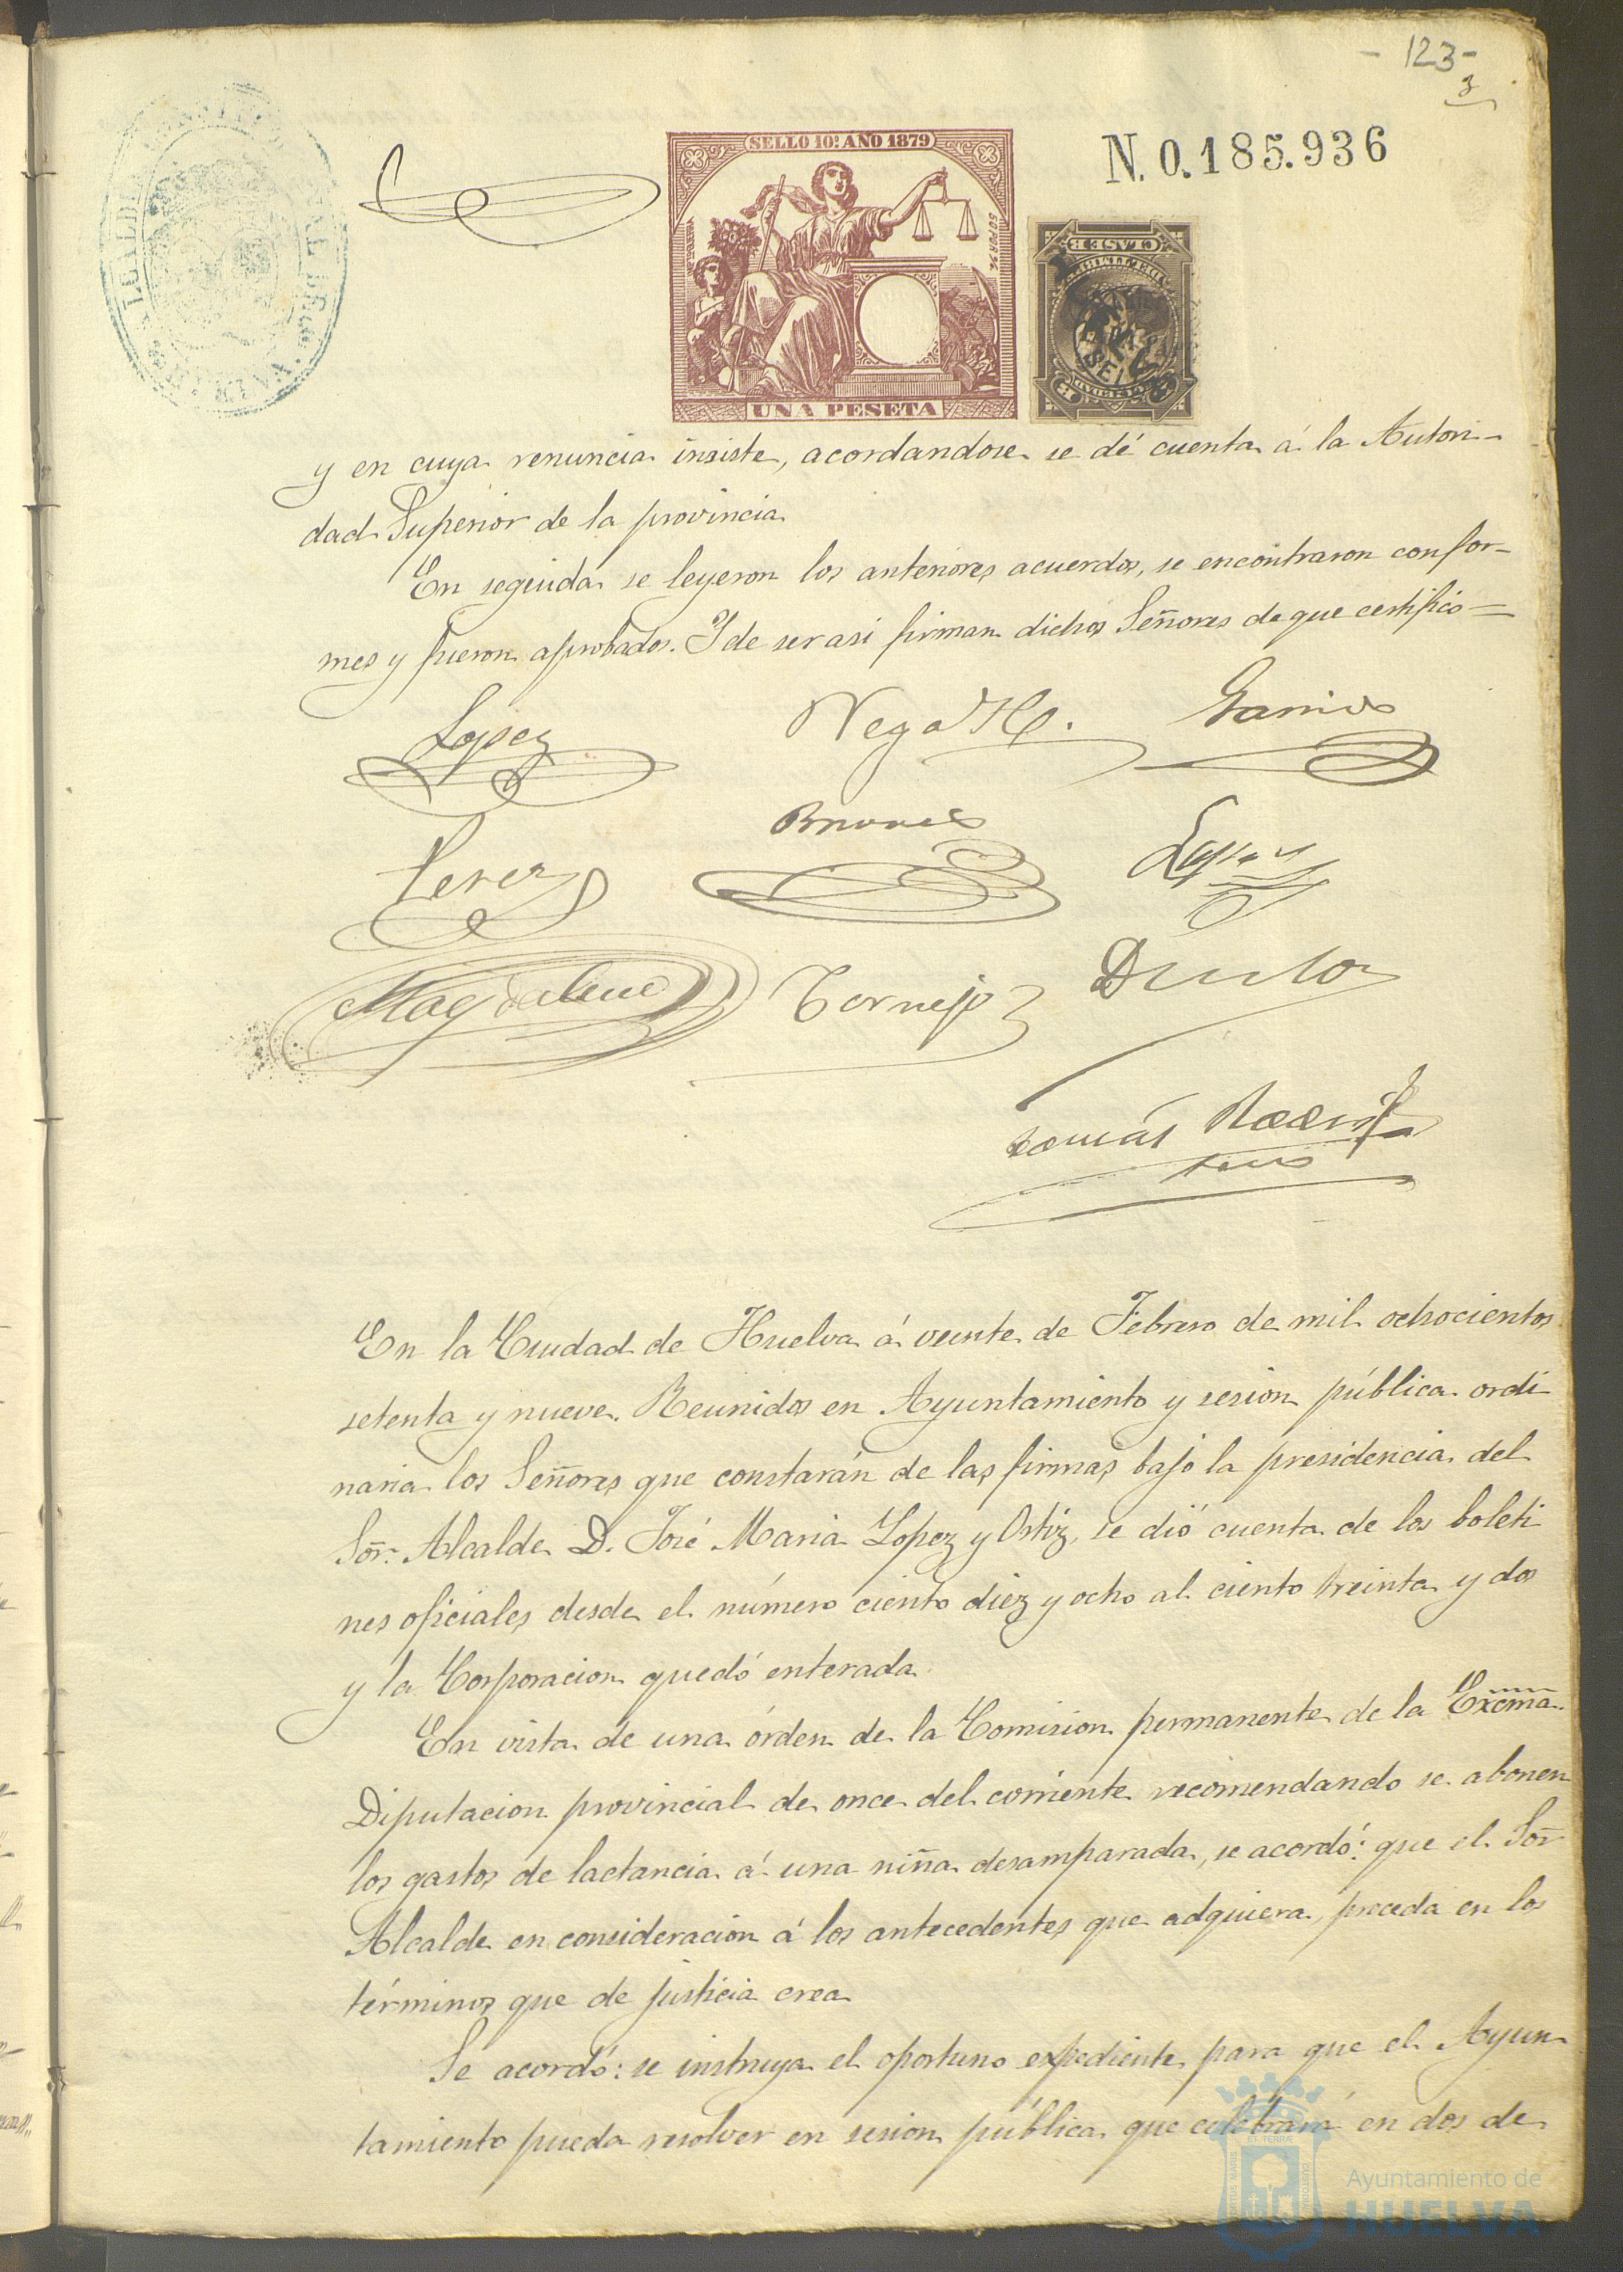 - 123 -
3
ALCALDIA CONSTITUCIONAL DE HUELVA
SELLO 10º AÑO 1879
N. 0.185.936
UNA PESETA
y en cuya renuncia insiste, acordandose se dé cuenta á la Autori-
dad Superior de la provincia
En seguida se leyeron los anteriores acuerdos, se encontraron confor-
mes y fueron aprobados. Y de ser asi firman dichos Señores de que certifico =
Lopez Vega H. Garrido
Perez Lopez
Magdalena Cornejo
Tomás
En la Ciudad de Huelva á veinte de Febrero de mil ochocientos
setenta y nueve. Reunidos en Ayuntamiento y sesion pública ordi
naria los Señores que constarán de las firmas bajo la presidencia del
Sõr. Alcalde D. José Maria Lopez y Ortiz, se dió cuenta de los boleti
nes oficiales desde el número ciento diez y ocho al ciento treinta y dos
y la Corporacion quedó enterada.
En vista de una órden de la Comision permanente de la Excma.
Diputacion provincial de once del corriente recomendando se abonen
los gastos de lactancia á una niña desamparada, se acordó: que el Sõr
Alcalde en consideracion á los antecedentes que adquiera, proceda en los
términos que de justicia crea
Se acordó: se instruya el oportuno expediente para que el Ayun
tamiento pueda resolver en sesion pública que celebrará en dos de
Ayuntamiento de
HUELVA